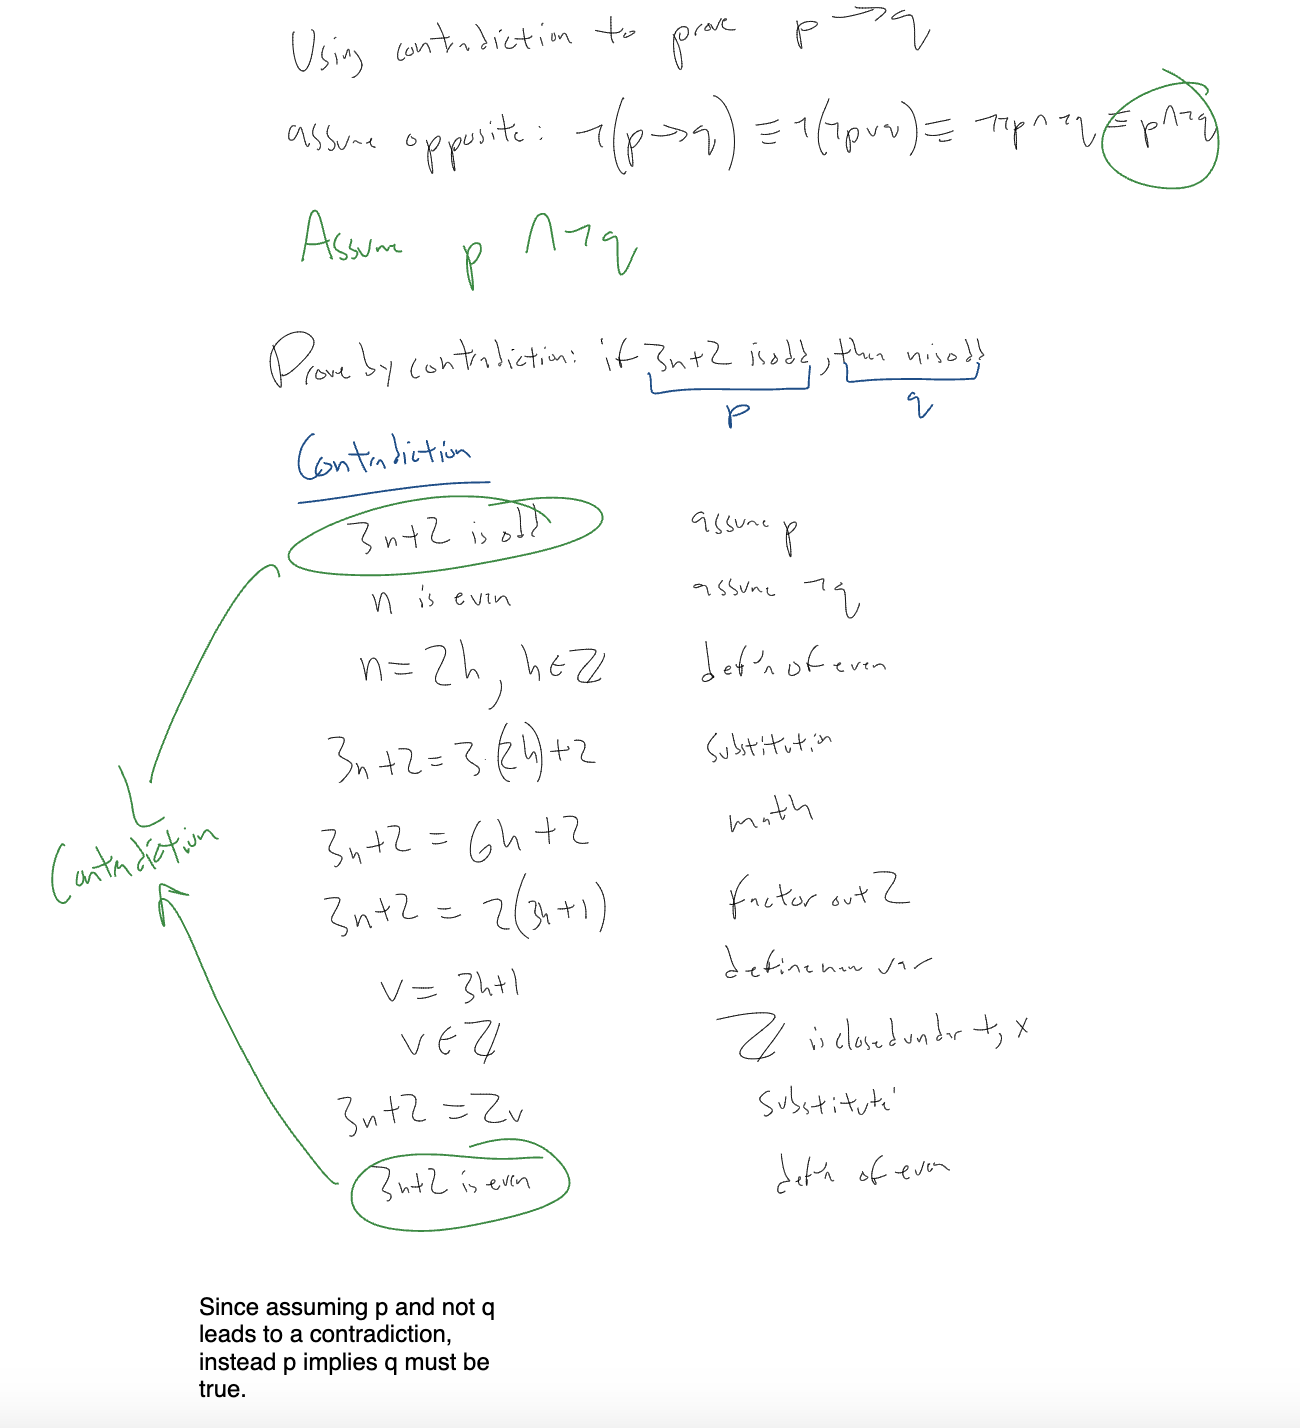 Using contradiction to prove p→q
assume opposite: ¬(p→q) ≡ ¬(¬p∨q) ≡ ¬¬p∧¬q ≡ p∧¬q
Assume p ∧¬q
Prove by contradiction: if 3n+2 is odd, then n is odd
p q
Contradiction
3n+2 is odd assume p
n is even assume ¬q
n=2h, h∈ℤ def'n of even
3n+2=3·(2h)+2 substitution
3n+2 = 6h+2 math
3n+2 = 2(3h+1) factor out 2
Contradiction
v= 3h+1 define new var
v∈ℤ ℤ is closed under +, x
3n+2 =2v substitute
3n+2 is even def'n of even
Since assuming p and not q
leads to a contradiction,
instead p implies q must be
true.